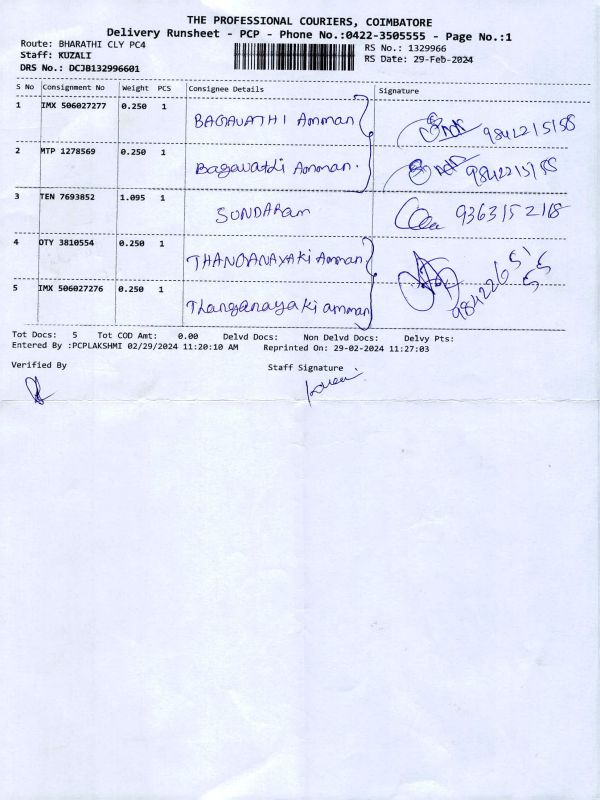 THE PROFESSIONAL COURIERS, COIMBATORE
Delivery Runsheet - PCP - Phone No.:0422-3505555 - Page No.:1
Route: BHARATHI CLY PC4 RS No.: 1329966
Staff: KUZALI RS Date: 29-Feb-2024
DRS No.: DCJB132996601
S No Consignment No Weight PCS Consignee Details Signature
1 IMX 506027277 0.250 1 BAGAVATHI Amman 9842215155
2 MTP 1278569 0.250 1 Bagavathi Amman. 9842215155
3 TEN 7693852 1.095 1 SUNDARAM 9363152168
4 OTY 3810554 0.250 1 THANGANAYAKi Amman
5 IMX 506027276 0.250 1 Thanganayaki amman
Tot Docs: 5 Tot COD Amt: 0.00 Delvd Docs: Non Delvd Docs: Delvy Pts:
Entered By :PCPLAKSHMI 02/29/2024 11:20:10 AM Reprinted On: 29-02-2024 11:27:03
Verified By Staff Signature